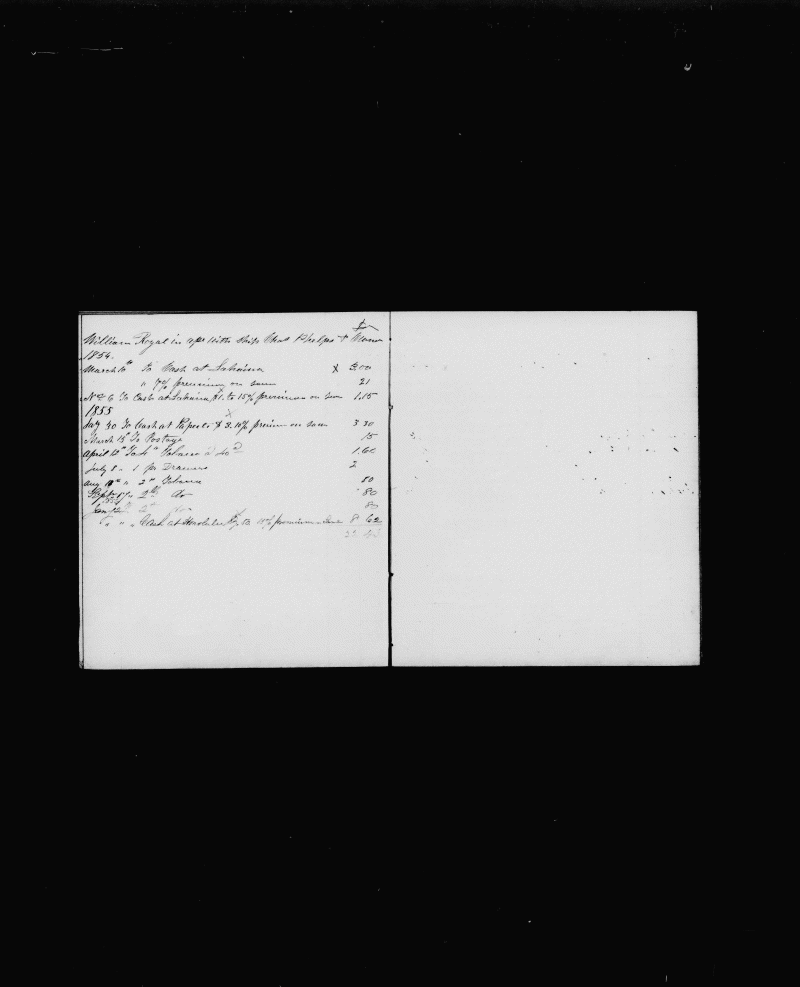 $
William Royal in a/c with Ship Chas Phelps + Owners
1854.
March 10th To Cash at Lahaina X 3.00
" 7% premium on same 21
To Cash at Lahaina $1. to 15% premium on same 1.15
1855 X
30 To Cash at $3. 10% premium on same 3 30
March To Postage 15
April 12" " Tobacco a 40 1.60
July 8 " 1 pr Drawers 2
Aug 10th " 2 " Tobacco 80
Sept " 2 lb do 80
2 " do 80
" " " Cash at Honolulu 15% premium same 8 62